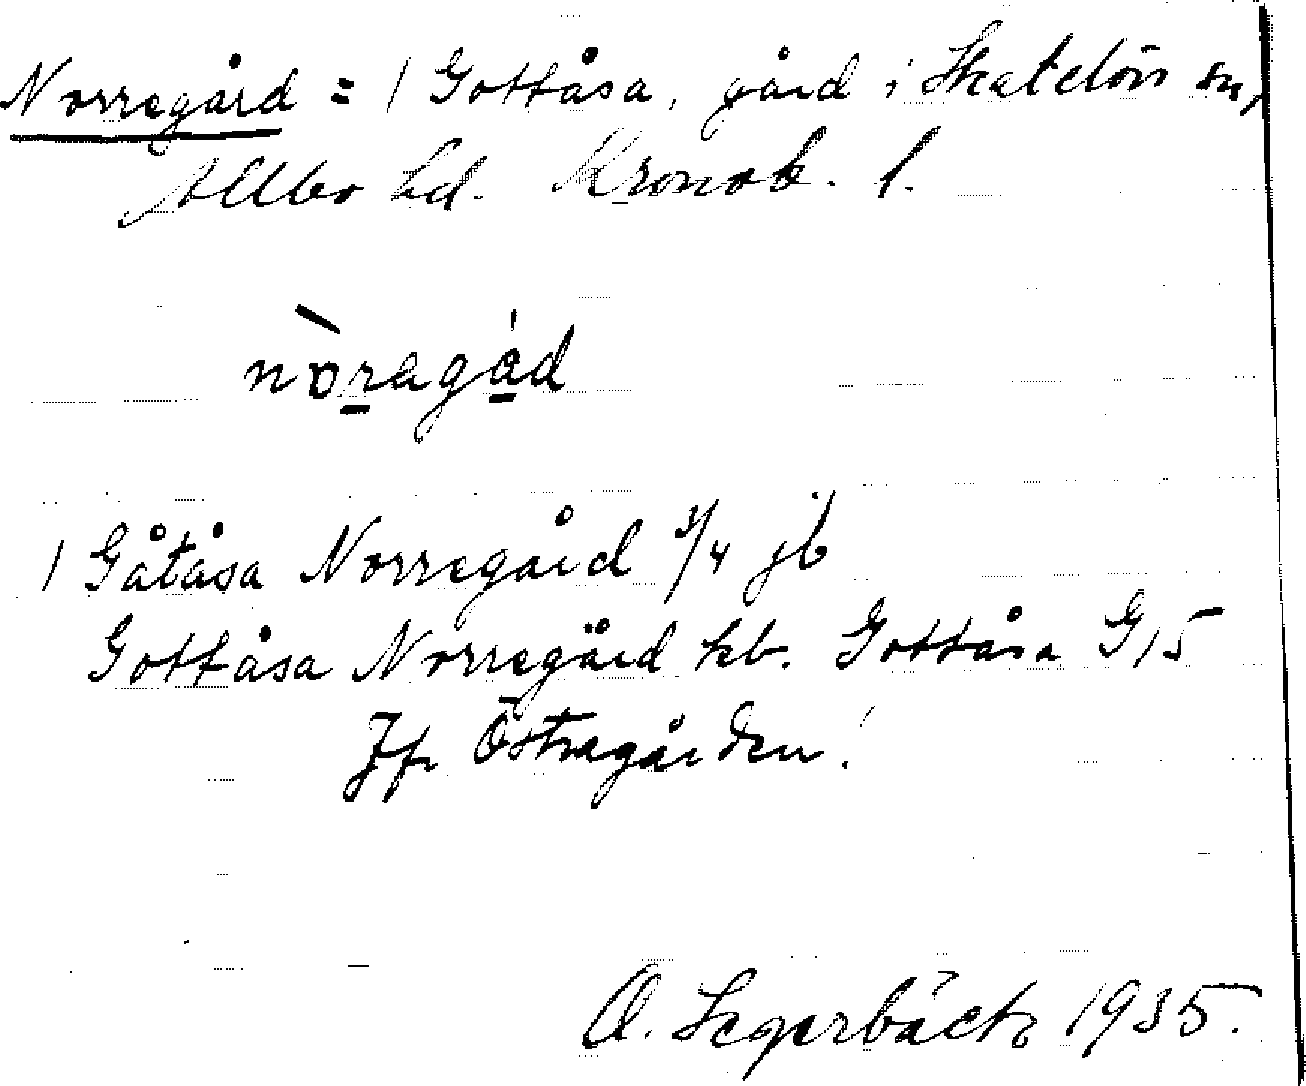 Norregård = 1 Gottåsa, gård i Skatelövs sn,
Allbo hd. Kronob. l.
nòragád
1 Gåtåsa Norregård 3/4 jb
Gottåsa Norregård kb. Gottåsa G15
Jfr Östragården!
O. Segerbäck 1935.